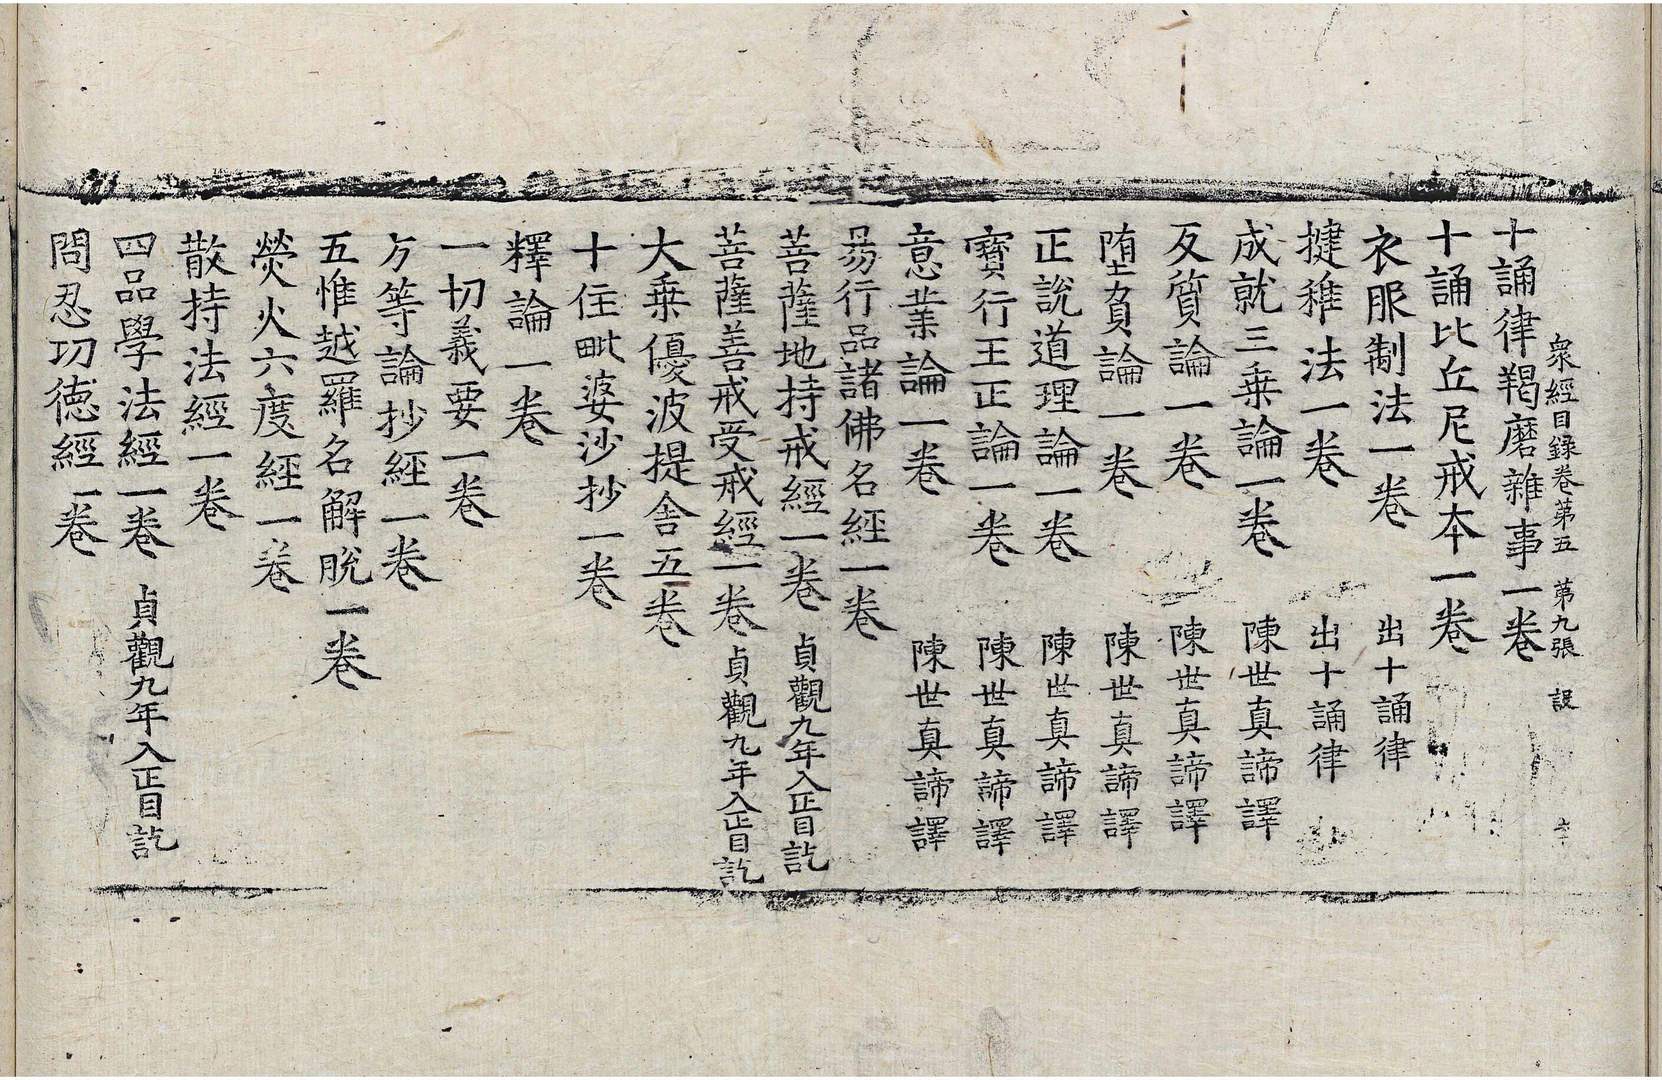 衆經目錄卷第五 第九張 設
十誦律羯磨雜事一卷
十誦比丘尼戒本一卷
衣服制法一卷 出十誦律
揵稚法一卷 出十誦律
成就三乗論一卷 陳世真諦譯
反質論一卷 陳世真諦譯
堕負論一卷 陳世真諦譯
正說道理論一卷 陳世真諦譯
寶行王正論一卷 陳世真諦譯
意業論一卷 陳世真諦譯
易行品諸佛名經一卷
菩薩地持戒經一卷 貞觀九年入正目訖
菩薩善戒受戒經一卷 貞觀九年入正目訖
大乗優波提舍五卷
十住毗婆沙抄一卷
釋論一卷
一切義要一卷
方等論抄經一卷
五惟越羅名解脫一卷
熒火六度經一卷
散持法經一卷
四品學法經一卷 貞觀九年入正目訖
問忍功徳經一卷